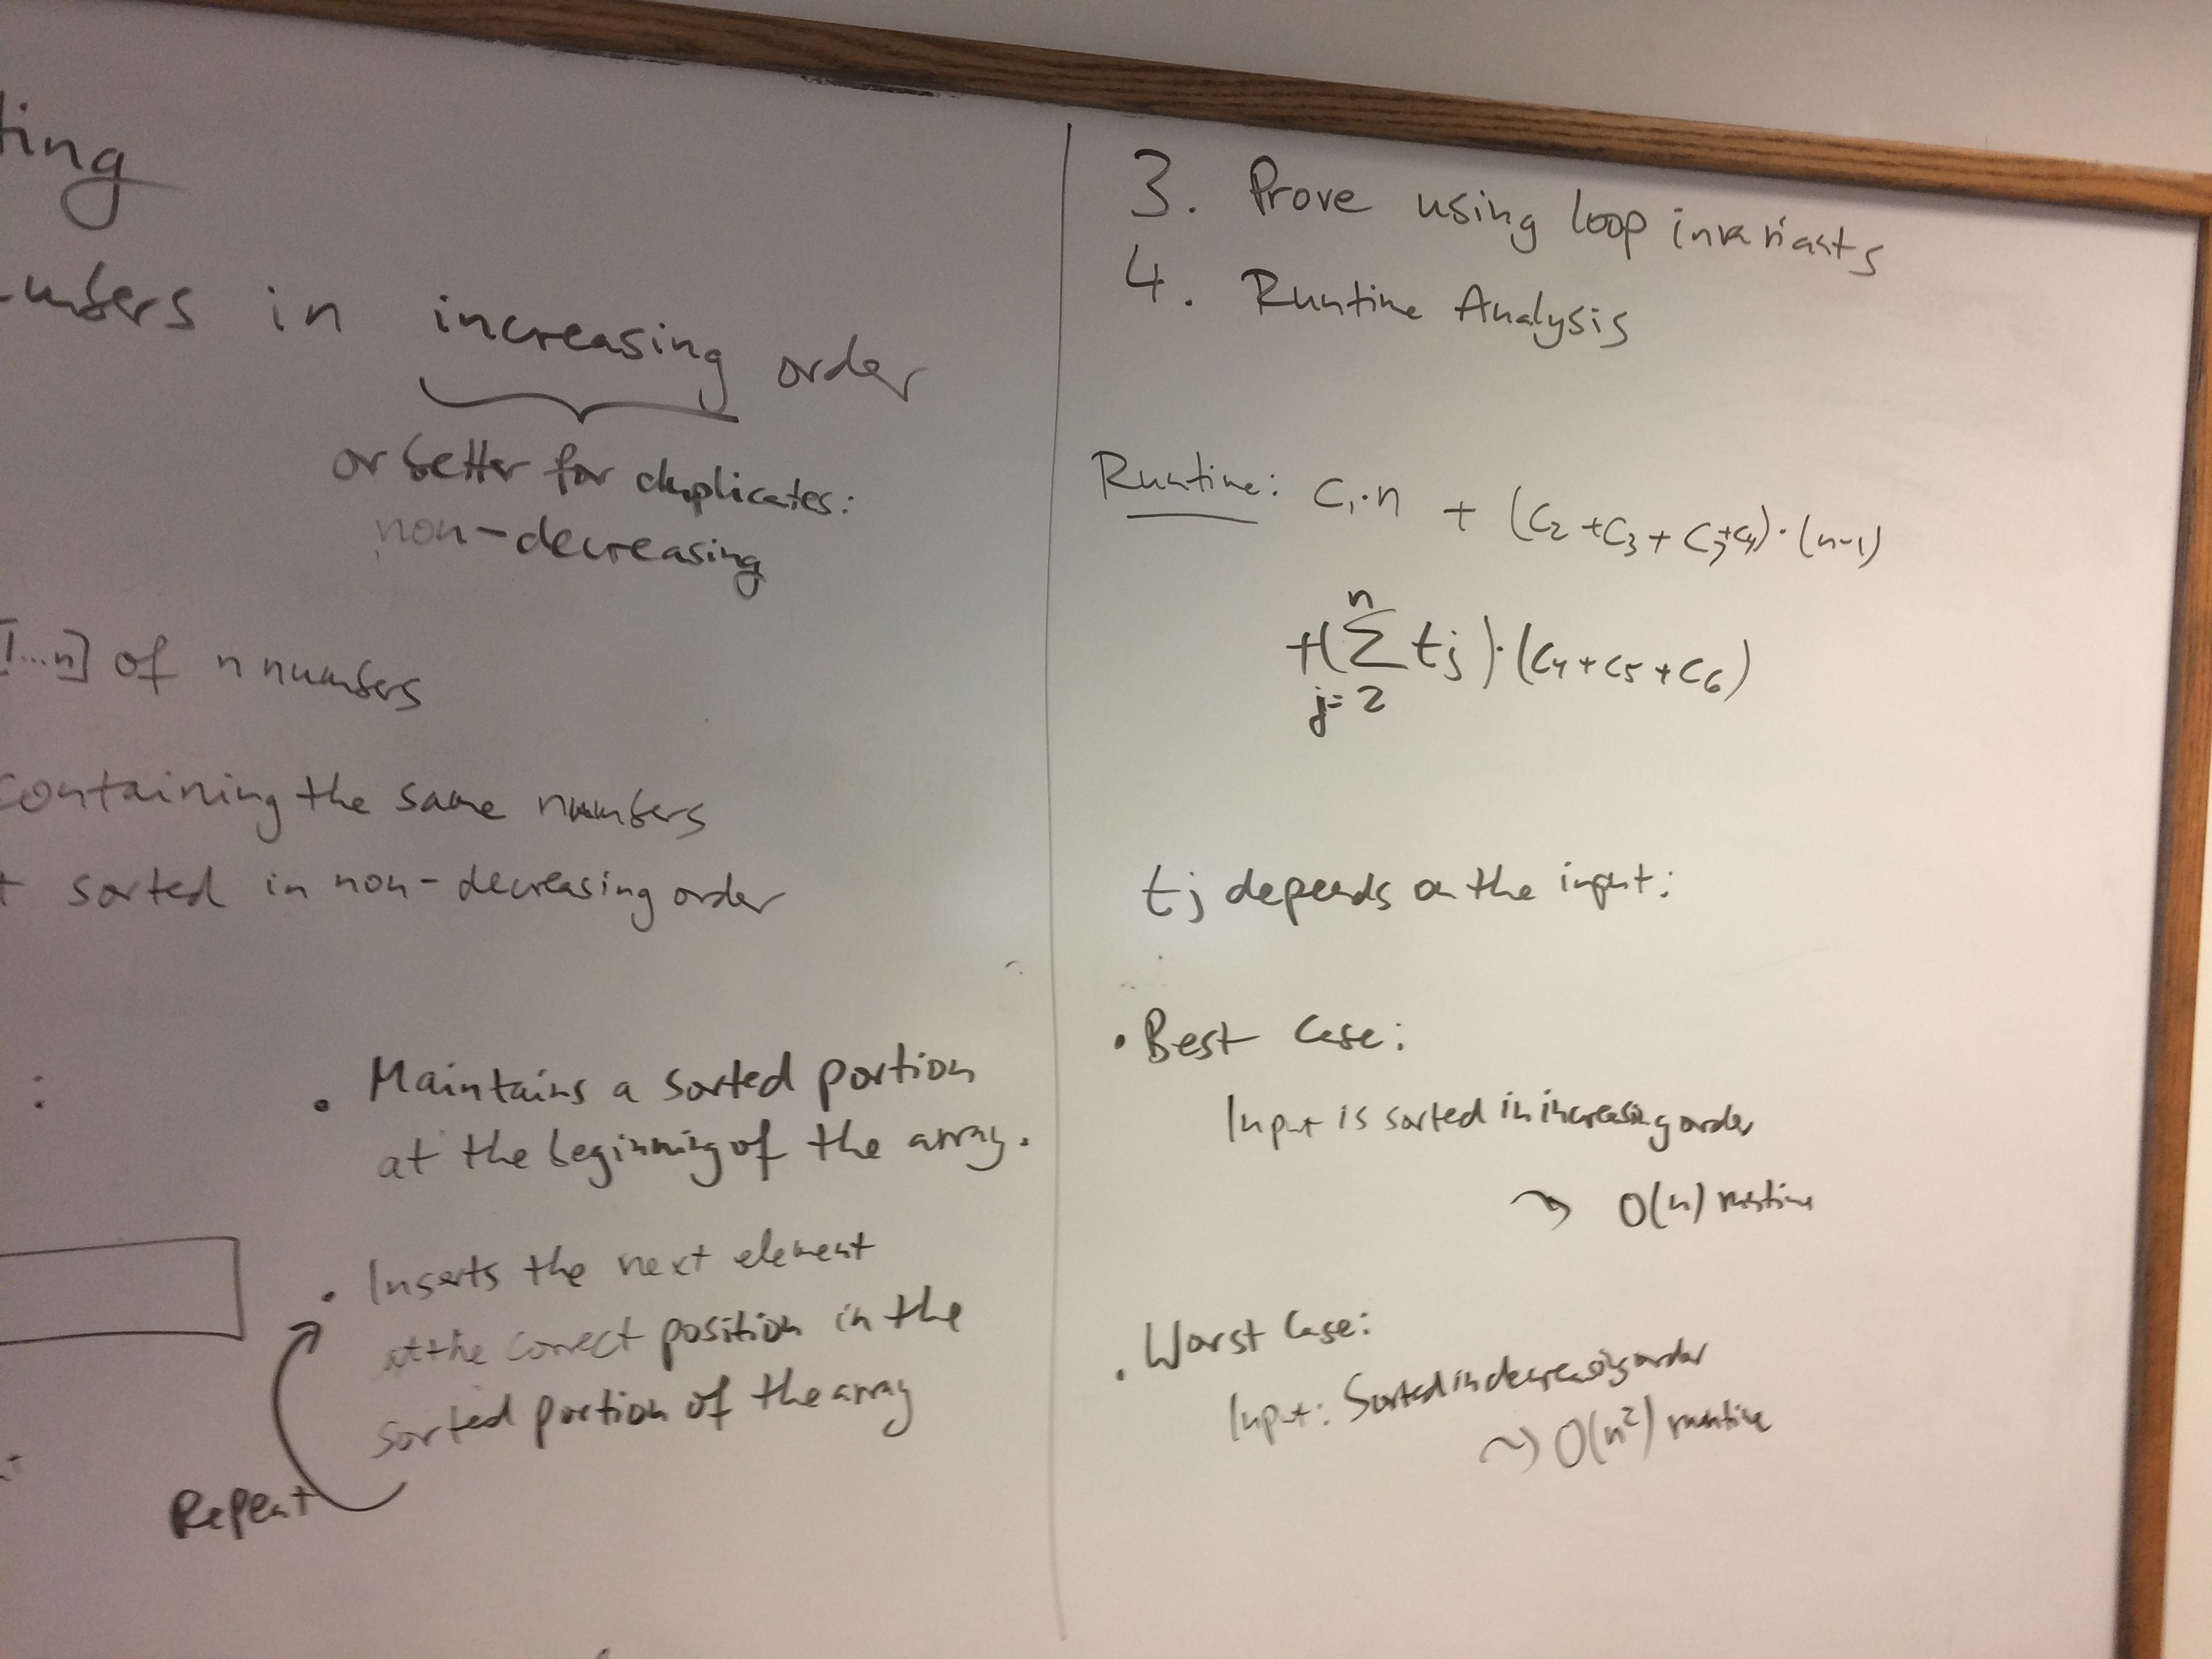 ting
umbers in increasing order
or better for duplicates:
non-decreasing
[1...n] of n numbers
containing the same numbers
sorted in non-decreasing order
:
• Maintains a sorted portion
at the beginning of the array.
• Inserts the next element
at the correct position in the
sorted portion of the array
Repeat
3. Prove using loop invariants
4. Runtime Analysis
Runtime: C₁·n + (C₂+C₃+C₇+C₄)·(n-1)
+(∑ⁿⱼ₌₂ tj)·(C₄+C₅+C₆)
tj depends on the input:
• Best Case:
Input is sorted in increasing order
⤳ O(n) runtime
• Worst Case:
Input: Sorted in decreasing order
⤳ O(n²) runtime